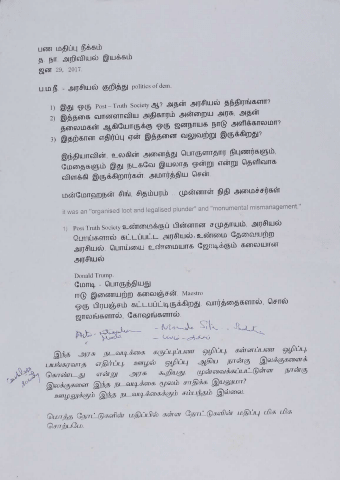 பண மதிப்பு நீக்கம்
த நா அறிவியல் இயக்கம்
ஜன 29, 2017
ப.ம.நீ - அரசியல் குறித்து politics of dem.
1) இது ஒரு Post – Truth Society ஆ? அதன் அரசியல் தந்திரங்களா?
2) இத்தகை வானளாவிய அதிகாரம் அன்றைய அரசு, அதன்
தலைமகன் ஆகியோருக்கு ஒரு ஜனநாயக நாடு அளிக்கலாமா?
3) இதற்கான எதிர்ப்பு ஏன் இத்தனை வலுவற்று இருக்கிறது?
இந்தியாவின், உலகின் அனைத்து பொருளாதார நிபுணர்களும்,
மேதைகளும் இது நடகவே இயலாத ஒன்று என்று தெளிவாக
விளக்கி இருக்கிறார்கள். அமார்த்திய சென்,
மன்மோஹன் சிங், சிதம்பரம் முன்னாள் நிதி அமைச்சர்கள்
it was an "organised loot and legalised plunder" and "monumental mismanagement."
1) Post Truth Society உண்மைக்குப் பின்னான சமுதாயம், அரசியல்
பொய்களால் கட்டப்பட்ட அரசியல், உண்மை தேவையற்ற
அரசியல், பொய்யை உண்மையாக ஜோடிக்கும் கலையான
அரசியல்
Donald Trump.
மோடி - பொருந்தியது
ஈடு இணையற்ற கலைஞன் Maestro
ஒரு பிரபஞ்சம் கட்டப்பட்டிருக்கிறது வார்த்தைகளால், சொல்
ஜாலங்களால், கோஷங்களால்
இந்த அரசு நடவடிக்கை கருப்புப்பண ஒழிப்பு, கள்ளப்பண ஒழிப்பு,
பயங்கரவாத எதிர்ப்பு, ஊழல் ஒழிப்பு ஆகிய நான்கு இலக்குகளைக்
கொண்டது என்று அரசு கூறியது முன்வைக்கப்பட்டுள்ள நான்கு
இலக்குகளை இந்த நடவடிக்கை மூலம் சாதிக்க இயலுமா?
ஊழலுக்கும் இந்த நடவடிக்கைக்கும் சம்பந்தம் இல்லை.
மொத்த நோட்டுகளின் மதிப்பில் கள்ள நோட்டுகளின் மதிப்பு மிக மிக
சொற்பமே.